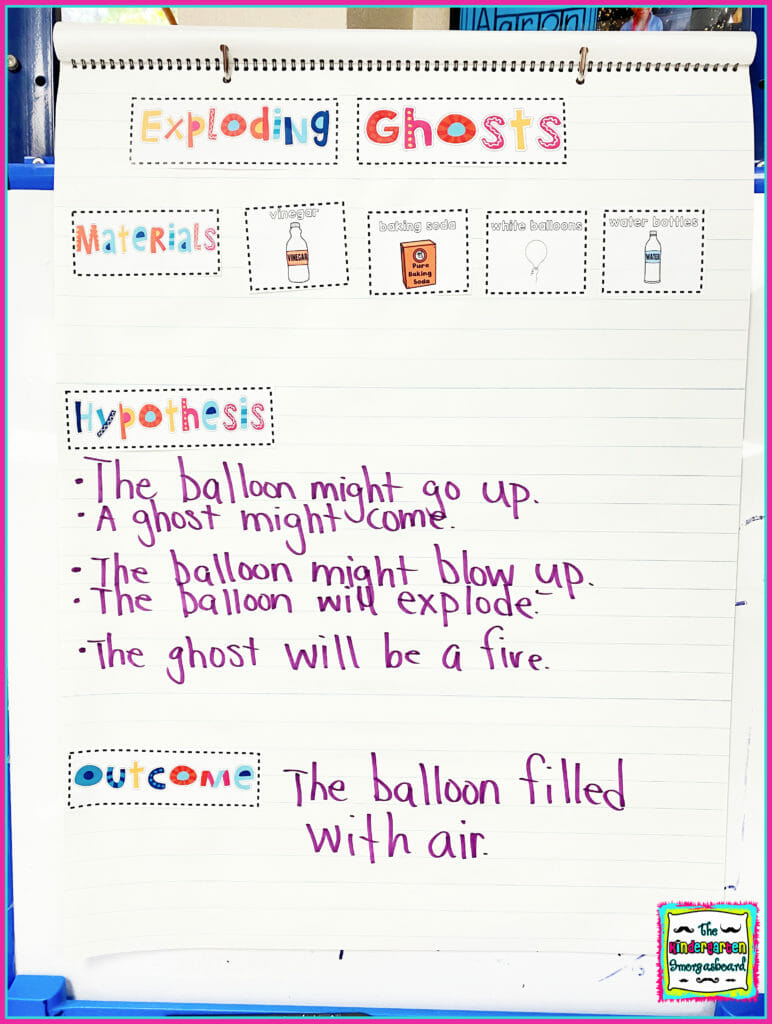 Aaron
Exploding Ghosts
Materials
vinegar
VINEGAR
baking soda
Pure
Baking
Soda
white balloons
water bottles
WATER
Hypothesis
• The balloon might go up.
• A ghost might come.
• The balloon might blow up.
• The balloon will explode.
• The ghost will be a fire.
Outcome
The balloon filled
with air.
The
Kindergarten
Smorgasboard